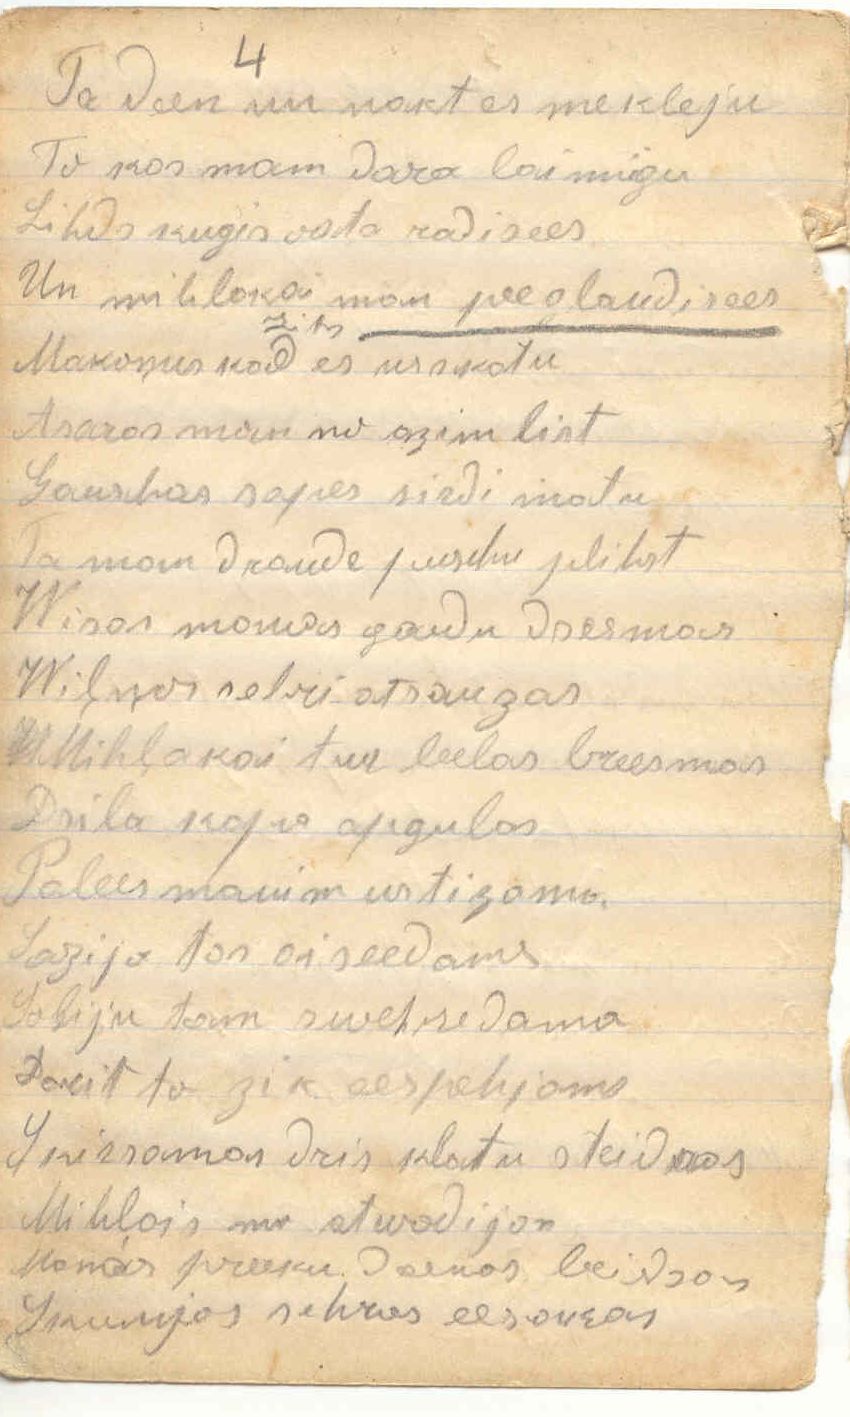 4
Ta deen un nakt es mekleju
To kas mam dara laimigu
Lihds kugis osta radisees
Un mihlakai man peeglaudisees
Zihs
Makoņus kad es usskatu
Asaras man no azim list
Gauschas sapes sirdi matu
Ta man draude puschu plihst
Wisas manas gaudu dseesmas
Wiļņos sehri atsauzas
Mihļakai tur leelas breesmas
Dsila kapa apgulas
Palees manim ustizama.
Sazija tas aiseedams
Soliju tam swehredama
Darit to zik eespehjams
Skirsamas dris klatu steidsas
Mihļais no atwadijas
Manas preeku deenas beidsas
Skumjas sehras eesahkas